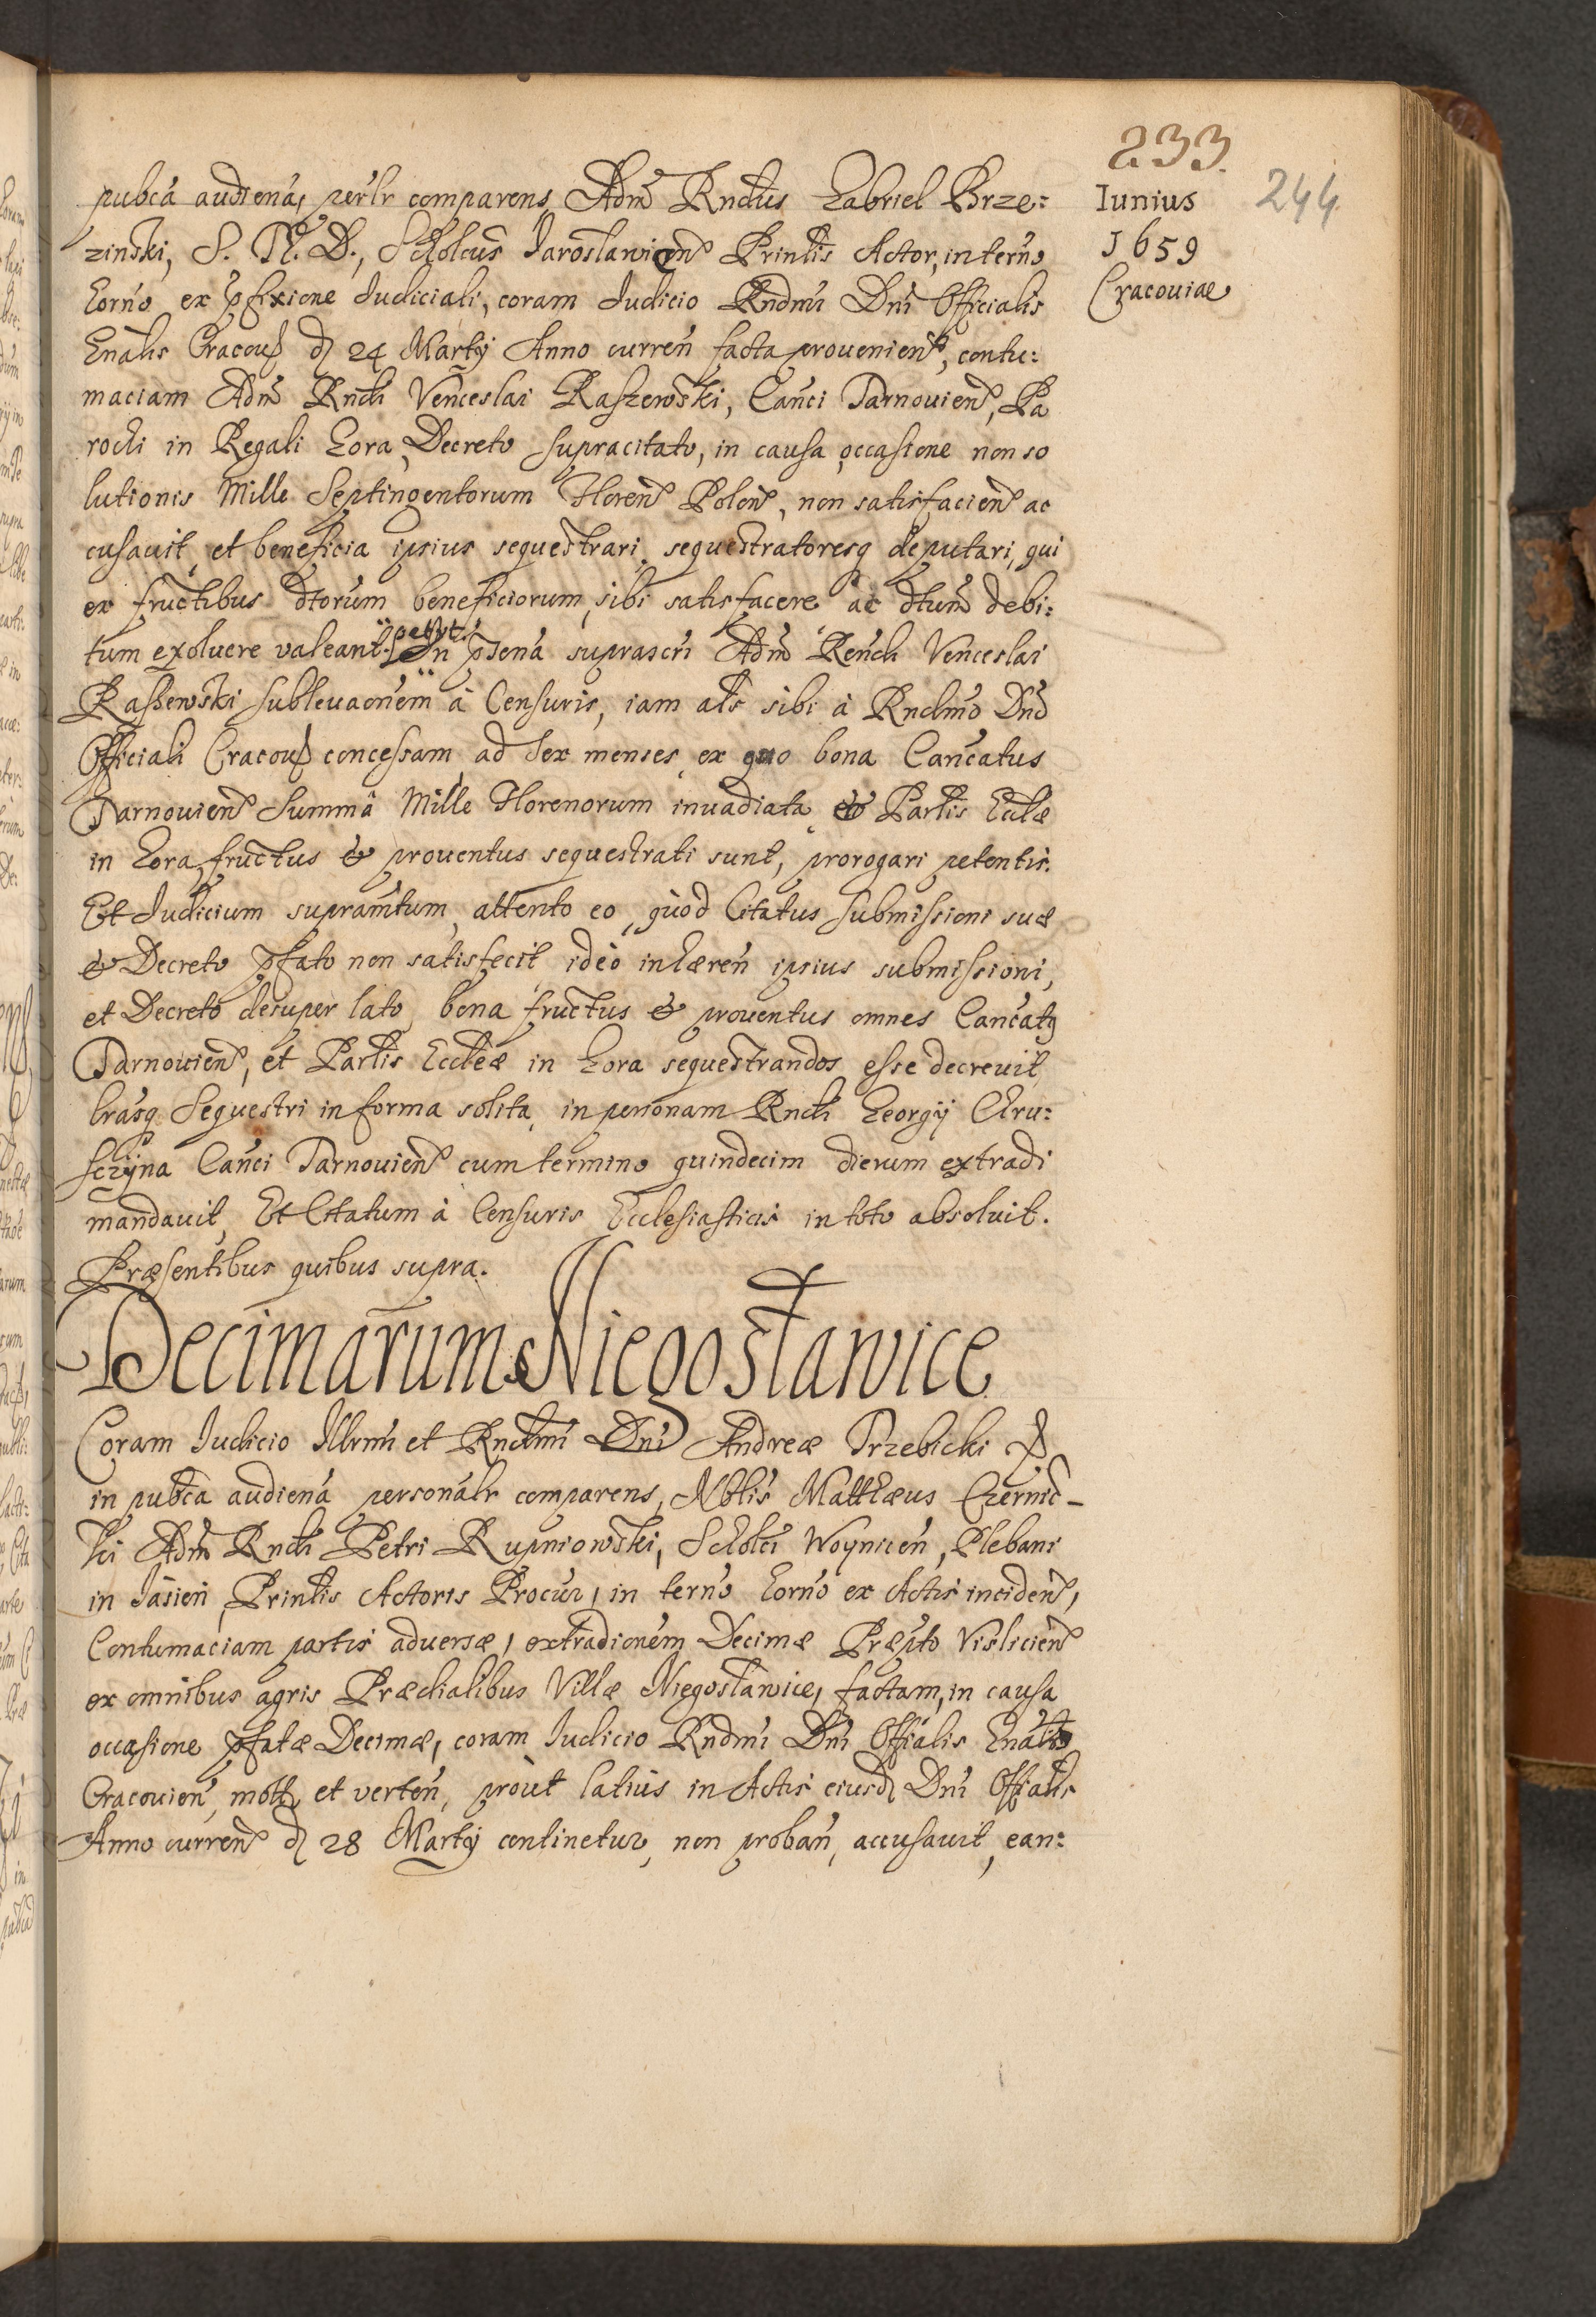 233.
244.
Iunius
1659
Cracouiae
pubca audiena, perlr comparens Adm Rndus Gabriel Brze:
zinski, S. Th. D., Scholcus Jaroslavien Prinlis Actor, in terno
horno ex pfixione Iudiciali, coram Iudicio Rndmi Dni Officialis
Gnalis Cracou d 24 Martij Anno curren facta prouenien, contu:
maciam Adm Rndi Venceslai Raszewski, Canci Tarnouien, Pa
rochi in Regali Gora, Decreto supracitato, in causa occasione non so
lutionis Mille Septingentorum Floren Polon, non satisfacien ac
cusauit, et beneficia ipsius sequestrari, sequestratoresq deputari, qui
ex fructibus dtorum beneficiorum, sibi satisfacere ac dtum debi:
tum exoluere valeant petyt. In psena suprascri Adm Rendi Venceslai
Raszewski subleuaonem à Censuris, iam als sibi à Rndmo Dno
Officiali Cracou concessam ad sex menses, ex quo bona Cancatus
Tarnouien Summâ Mille Florenorum inuadiata & Partis Ecclae
in Gora, fructus & prouentus sequestrati sunt, prorogari petentis.
Et Iudicium supramtum, attento eo, quòd Citatus submissioni suae
& Decreto pfato non satisfecit ideò inhaeren ipsius submissioni,
et Decreto desuper lato, bona fructus & prouentus omnes Cancatq
Tarnouien, et Partis Eccleae in Gora sequestrandos esse decreuit,
lrasq Sequestri in forma solita, in personam Rndi Georgij Chru:
sczyna Canci Tarnouien cum termino quindecim dierum extradi
mandauit, Et Citatum à Censuris Ecclesiasticis in toto absoluit.
Praesentibus quibus supra.
Decimarum Niegosławice
Coram Iudicio Illrmi et Rndmi Dni Andreae Trzebicki
in pubca audiena personalr comparens, Nblis Matthaeus Czernic-
ki Adm Rndi Petri Rupniowski, Scholci Woynicen, Plebani
in Jasien, Prinlis Actoris Procur, in terno horno ex Actis inciden,
Contumaciam partis aduersae, extradionem Decimae Praepto Vislicien
ex omnibus agris Praedialibus Villae Niegosławice, factam, in causa
occasione pfatae Decimae, coram Iudicio Rndmi Dni Offialis Gnalis
Cracouien, mott et verten, prout latius in Actis eiusd Dni Offialis
Anno curren d 28 Martij continetur, non proban, accusauit, ean: